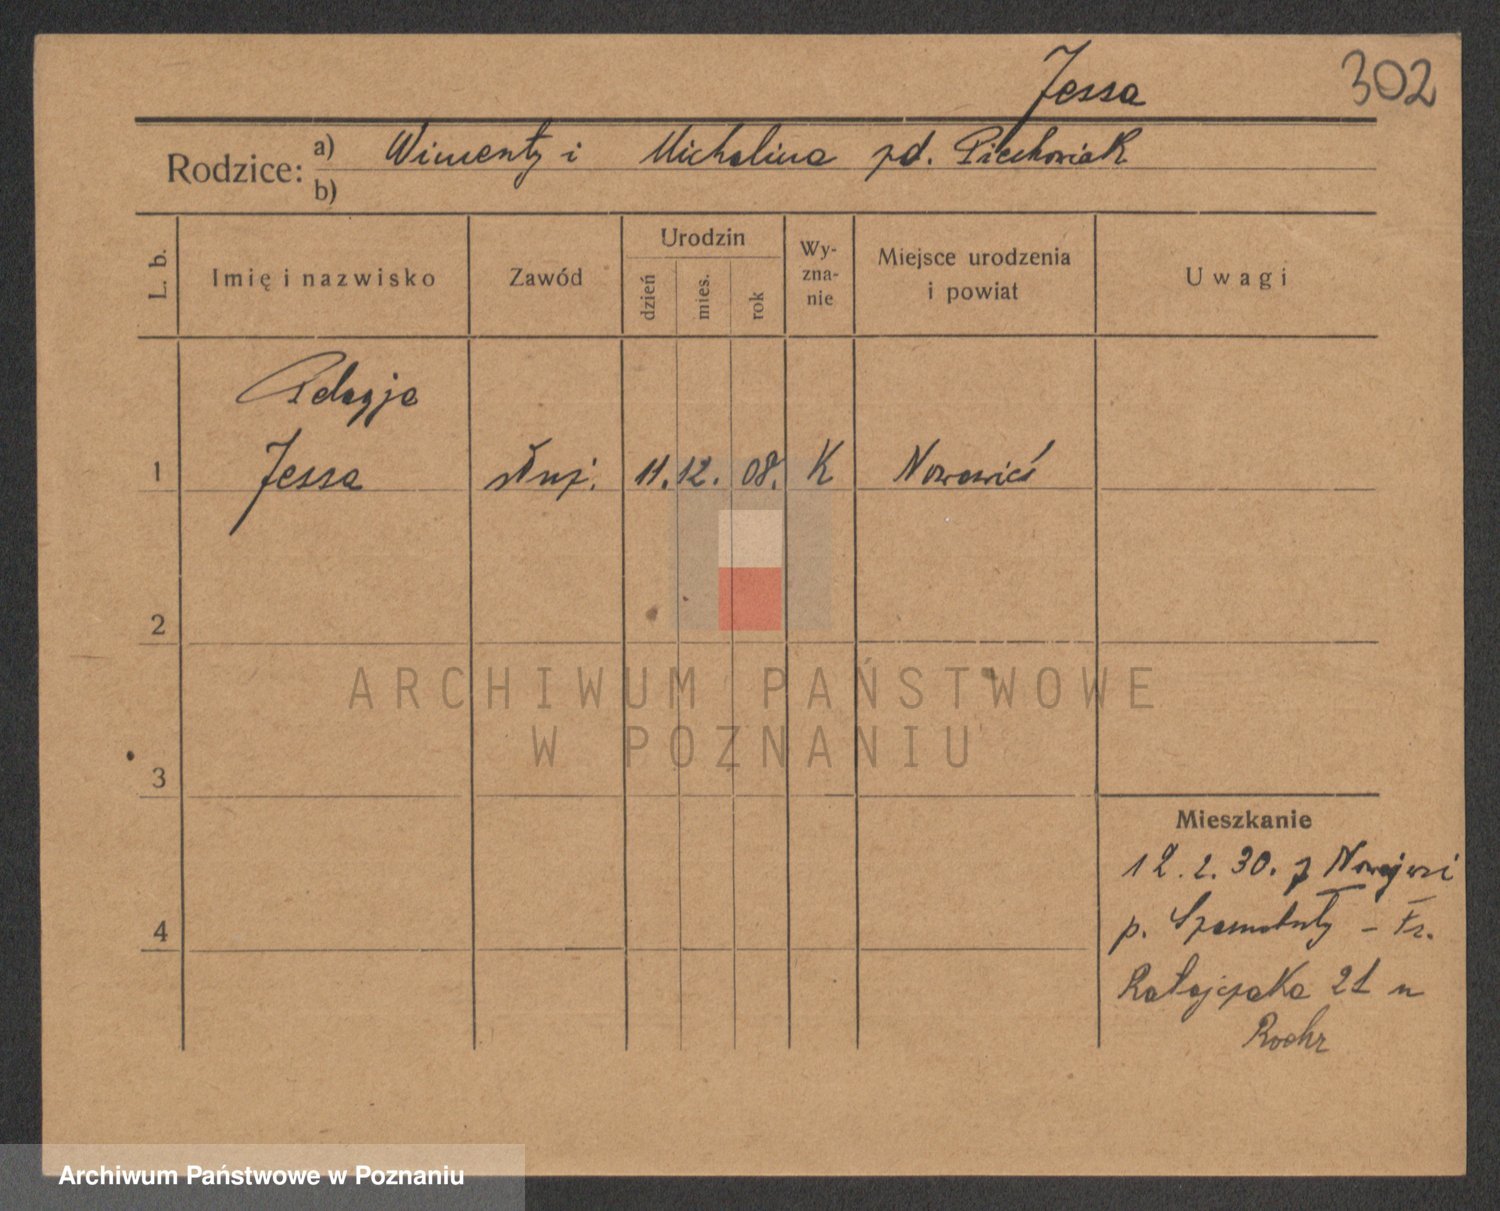 Jessa
302
Rodzice: a) Wincenty i Michalina zd. Piechowiak
b)
L. b.
Imię i nazwisko
Zawód
Urodzin
dzień
mies.
rok
Wy-
zna-
nie
Miejsce urodzenia
i powiat
Uwagi
Pelagja
1 Jessa służ. 11. 12. 08. K Nowawieś
2
3
4
Mieszkanie
12. 2. 30. z Nowejwsi
p. Szamotuły – Fr.
Ratajczaka 21 u
Roehr
ARCHIWUM PAŃSTWOWE
W POZNANIU
Archiwum Państwowe w Poznaniu